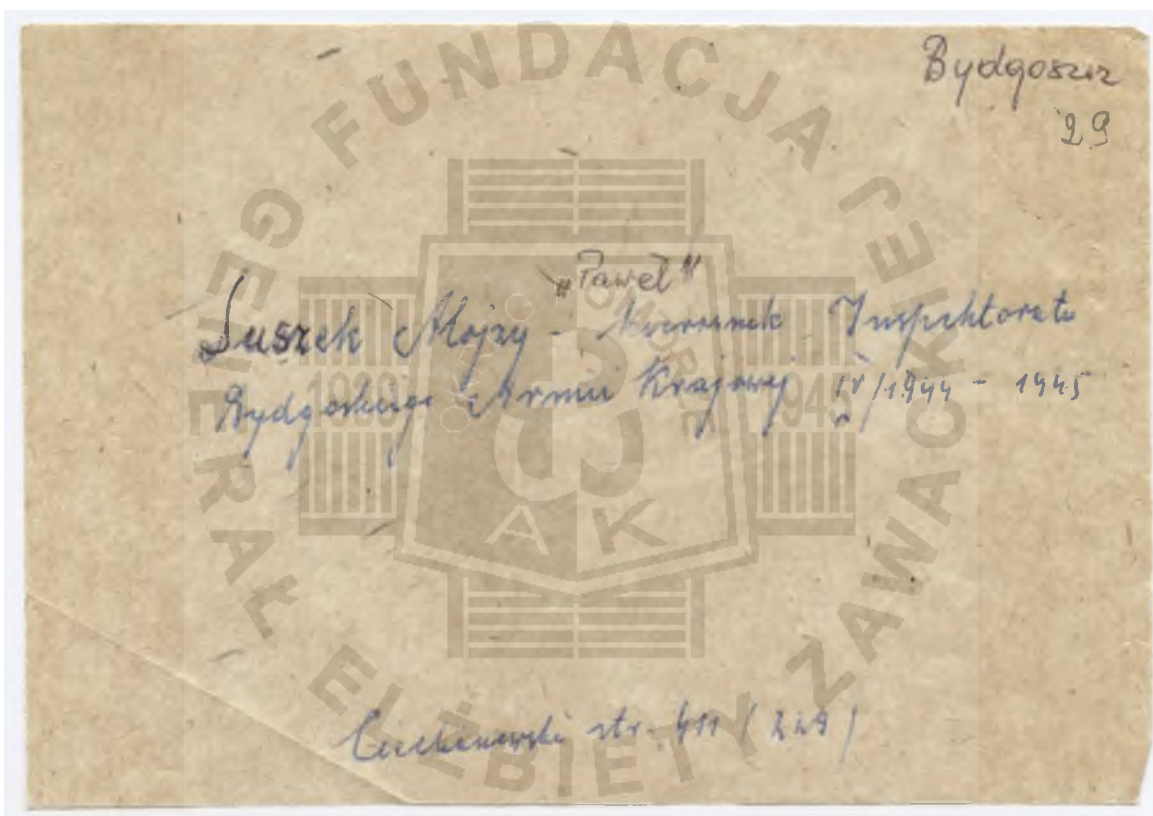 Bydgoszcz
29
"Paweł"
Suszek Alojzy - Kierownik Inspektoratu
Bydgoskiego Armii Krajowej IV/1944 - 1945
Ciechanowski str. 411 (229)
FUNDACJA JEJ
GENERAŁ ELŻBIETY ZAWACKIEJ
1939 1945
POMORZE
AK